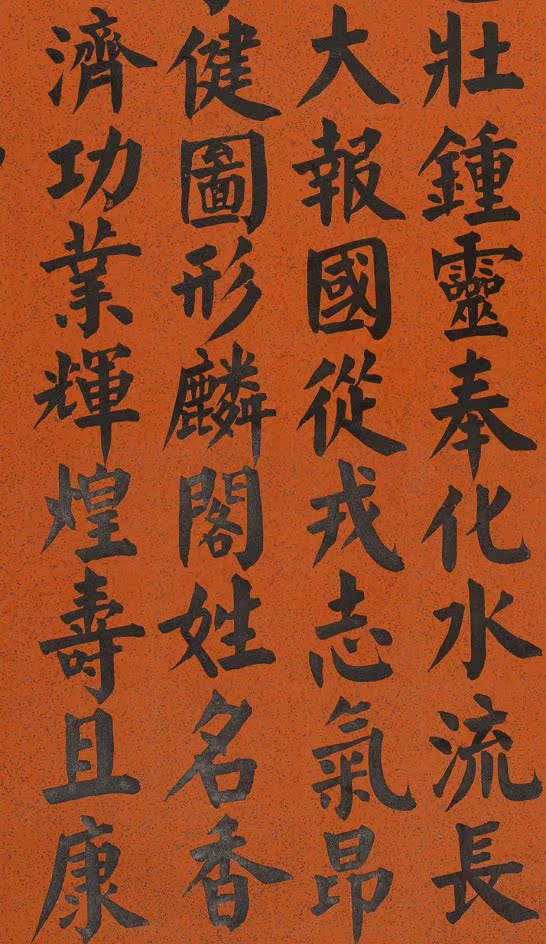 壯鍾靈奉化水流長
大報國從戎志氣昂
健圖形麟閣姓名香
濟功業輝煌壽且康